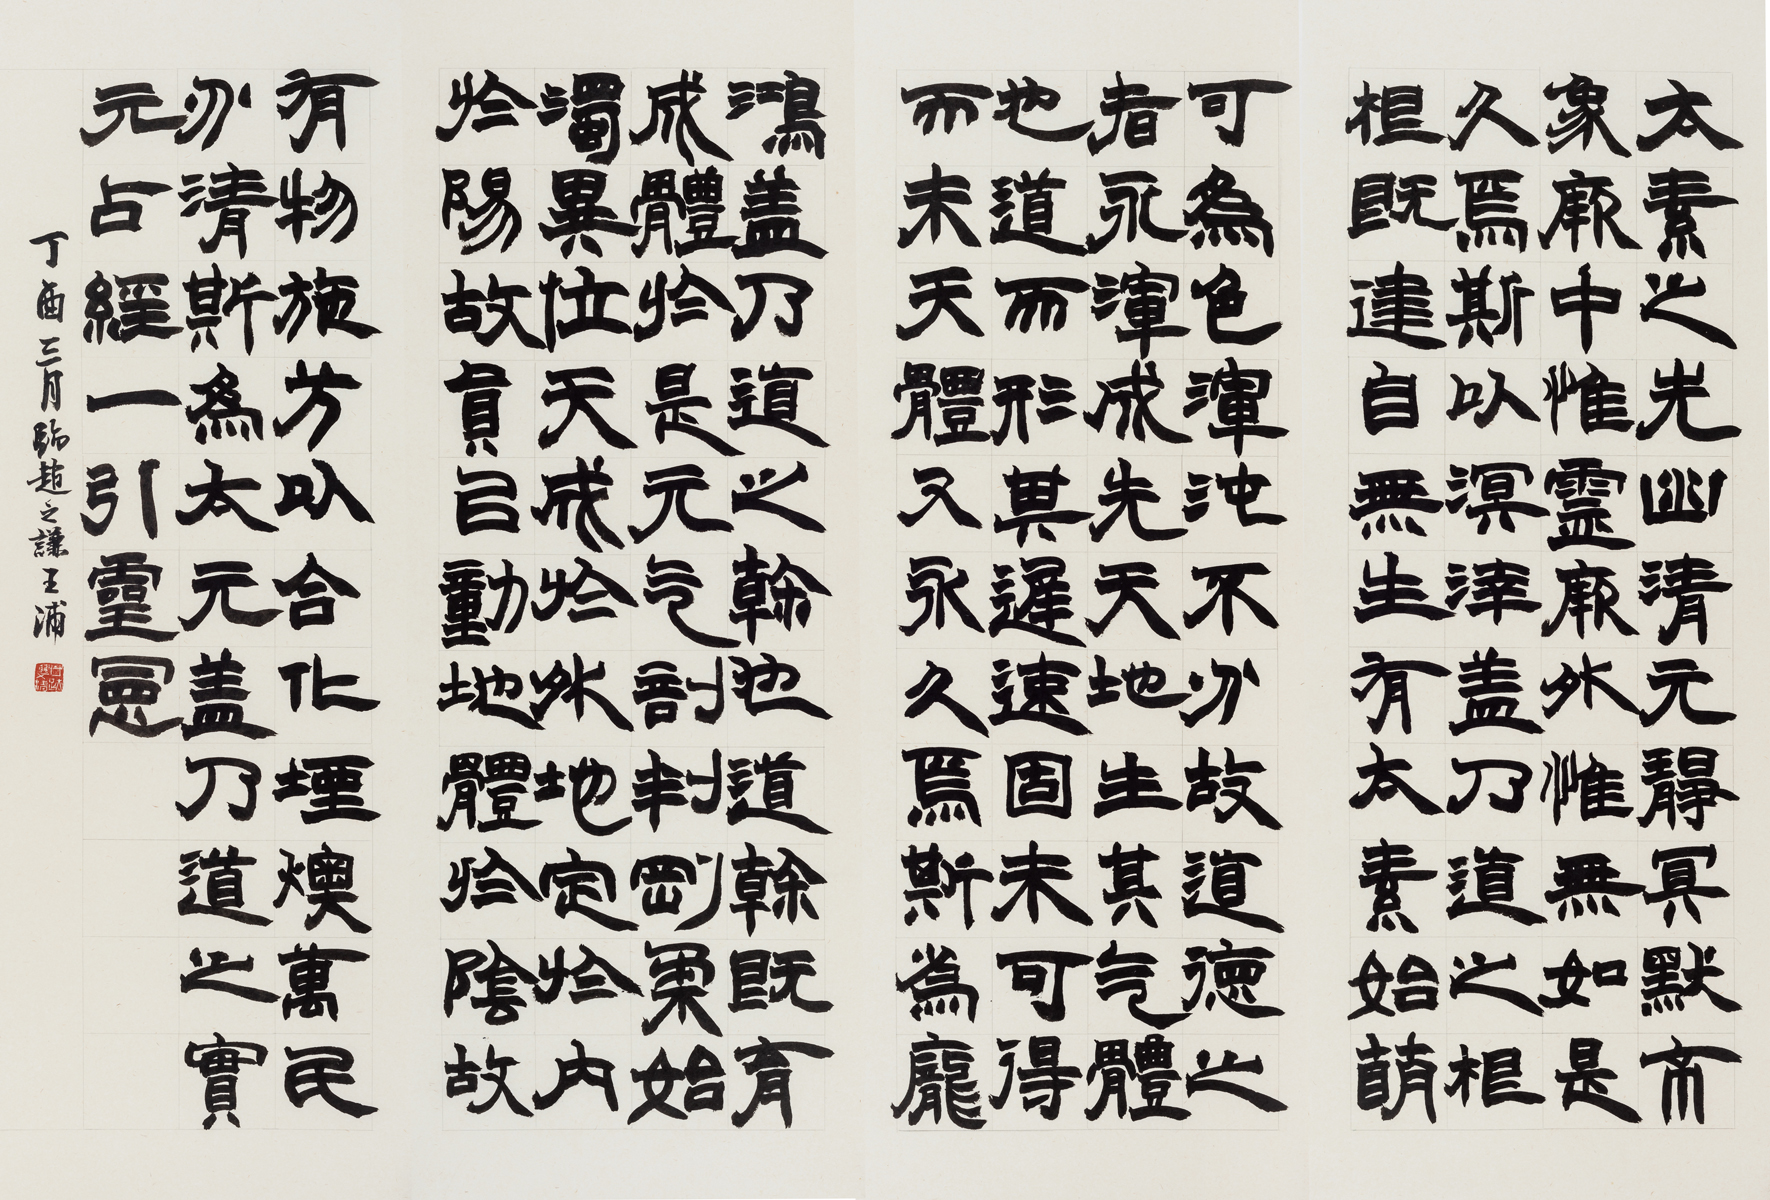 太素之先幽清元靜冥默
象厥中惟靈厥外惟無如是
久焉斯以溟涬蓋乃道之根
根既建自無生有太素始萌
可為色渾沌不分故道德之
者永渾成先天地生其气體
也道而形其遲速固未可得
而未天體又永久焉斯為龐
鴻蓋乃道之幹也道幹既育
成體於是元气剖判剛柔始
濁異位天成於外地定於內
於陽故員㠯動地體於陰故
有物施芳以合化堙燠萬民
分清斯為太元蓋乃道之實
元占經一引靈憲
丁酉三月臨趙之謙王浦